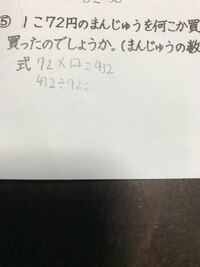 ⑤ 1こ72円のまんじゅうを何こか買
買ったのでしょうか。(まんじゅうの数
式 72×□=432
432÷72=